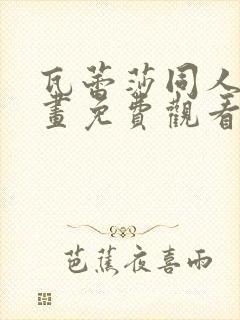 瓦蕾莎同人
畫免費觀看
芭蕉夜喜雨